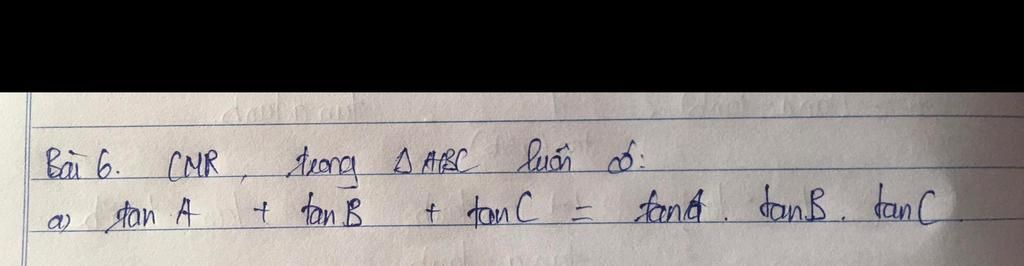 Bài 6. CMR, trong △ ABC luôn có:
a) tan A + tan B + tan C = tanA. tanB. tanC